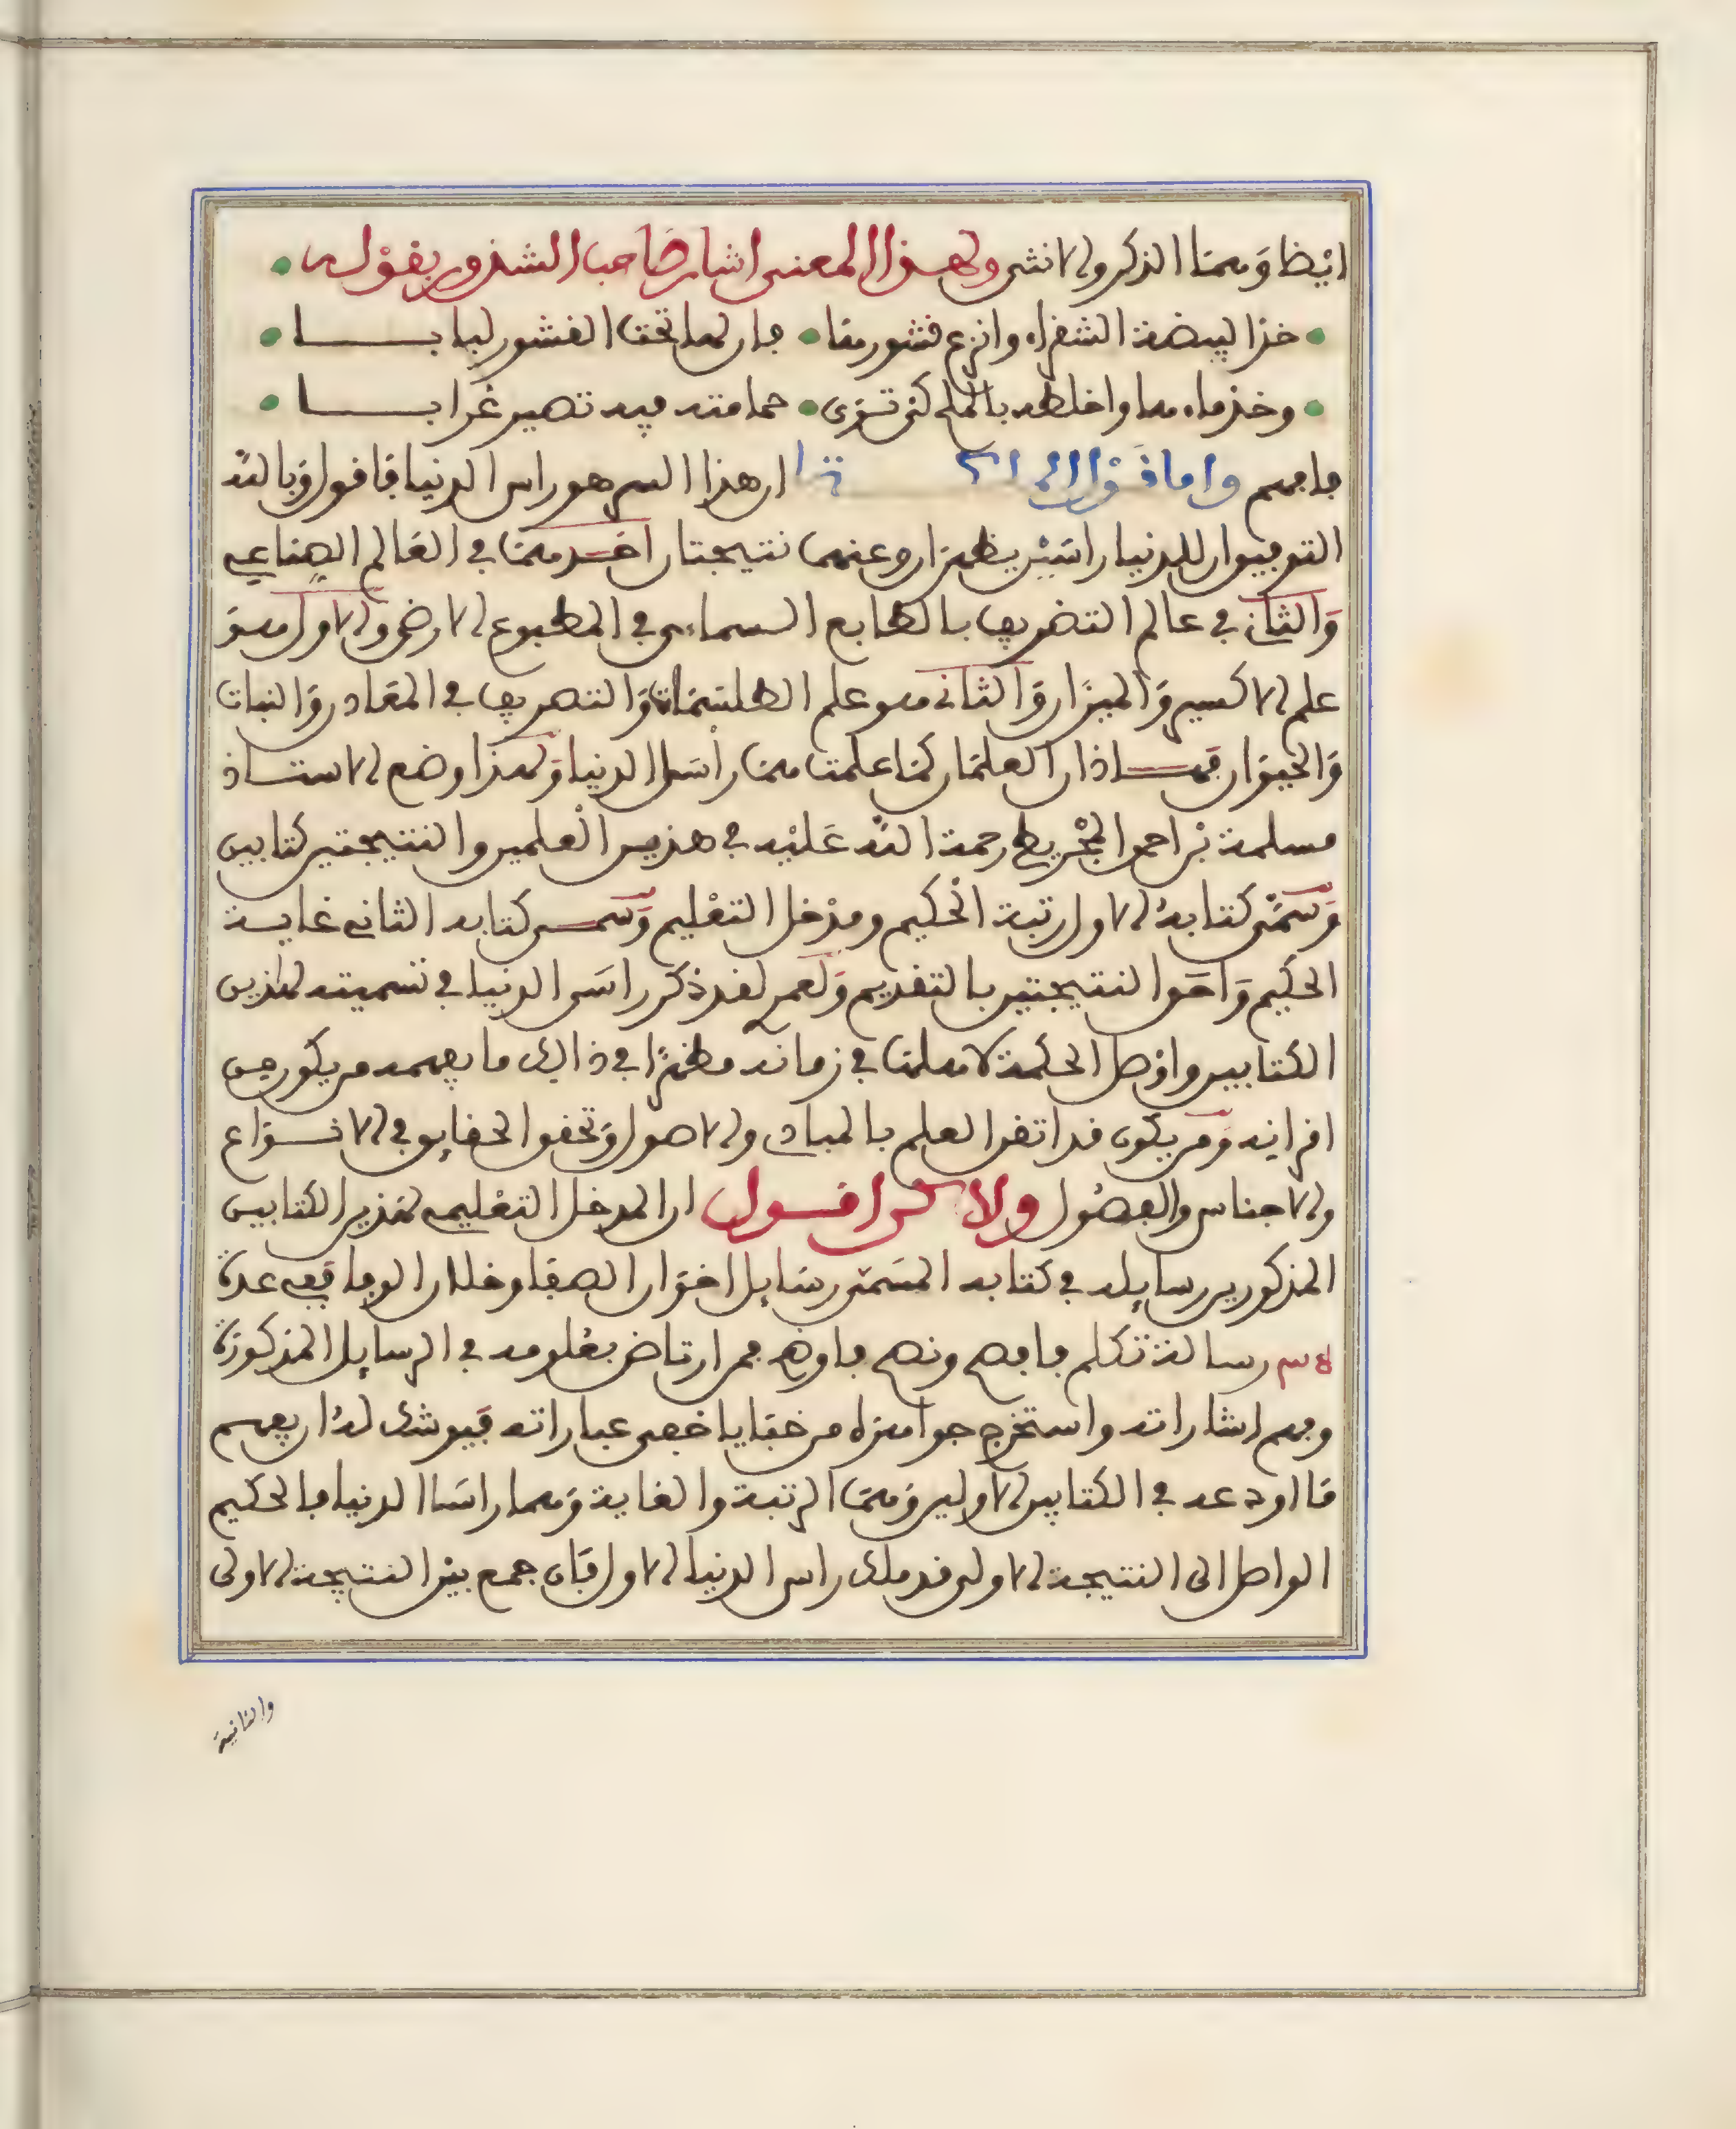 ايضا وهما الذكر والانثى ولهذا المعنى اشار صاحب الشذور بقوله
خذ البيضة الشقراء وانزع قشورها فان لها تحت القشور لبابا
وخذ ماءها واخلطه بالملح كي ترى حمامته فيه تصير غرابا
فافهم واما قوله ان هذا السر هو راس الدنيا فاقول وبالله
التوفيق ان للدنيا راسين يظهران وعنهما نتيجتان احدهما في العالم الصناعي
والثاني في عالم التصريف بالطابع السماءي في المطبوع الارضي والاول هو
علم الاكسير والميزان والثاني هو علم الطلسمات والتصريف في المعادن والنبات
والحيوان فهذان العلمان كما علمت هما راسا الدنيا ولهذا وضع الاستاذ
مسلمة بن احمد المجريطي رحمة الله عليه في هذين العلمين والنتيجتين كتابين
وسمى كتابه الاول رتبة الحكيم ومدخل التعليم وسمى كتابه الثاني غاية
الحكيم واحق النتيجتين بالتقديم ولعمري لقد ذكر راسى الدنيا في تسميته لهذين
الكتابين واوصل الحكمة لاهلها في زمانه مظهرا في ذالك ما يفهمه من يكون من
اقرانه ومن يكون قد اتقن العلم بالمبادي والاصول وتحقق الحقايق في الانواع
والاجناس والفصول ولاكن اقول ان المدخل التعليمي لهذين الكتابين
المذكورين رسايله في كتابه المسمى رسايل اخوان الصفا وخلان الوفا ففي عدة
رسالة تكلم فافصح ونصح فاوضح فمن ارتاض بعلومه في الرسايل المذكورة
وفهم اشاراته واستخرج جواهره من خفايا خفي عباراته فيوشك له ان يفهم
ما اودعه في الكتابين الاولين وهما الرتبة والغاية وهما راسا الدنيا فالحكيم
الواصل الى النتيجة الاولى قد ملك راس الدنيا الاول فان جمع بين النتيجة الاولى
والثانية